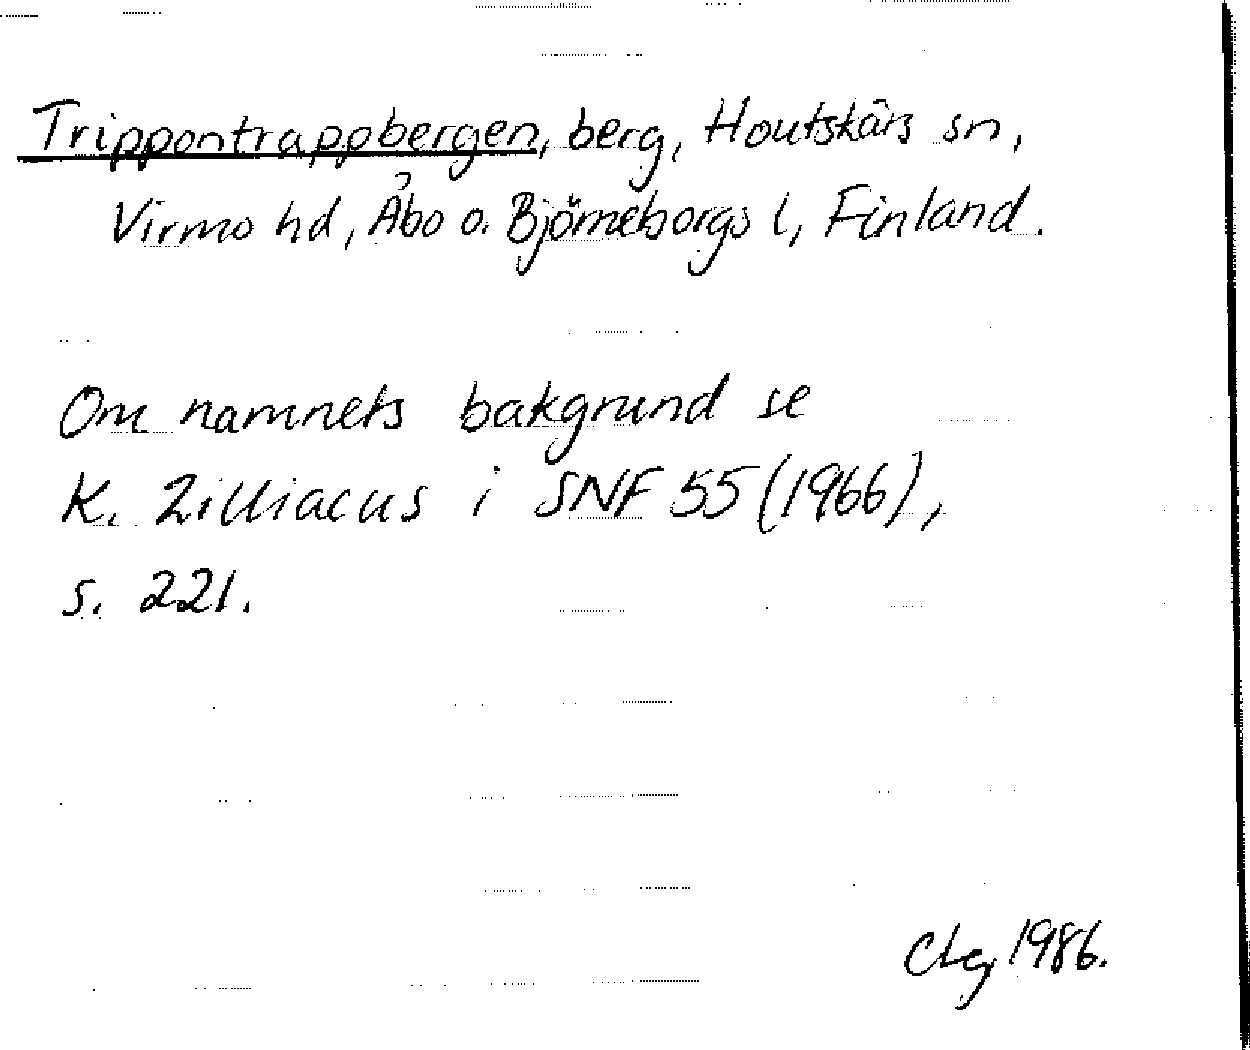 Trippontrappbergen, berg, Houtskärs sn,
Virmo hd, Åbo o. Björneborgs l, Finland.
Om namnets bakgrund se
K. Zilliacus i SNF 55 (1966),
s. 221.
1986.